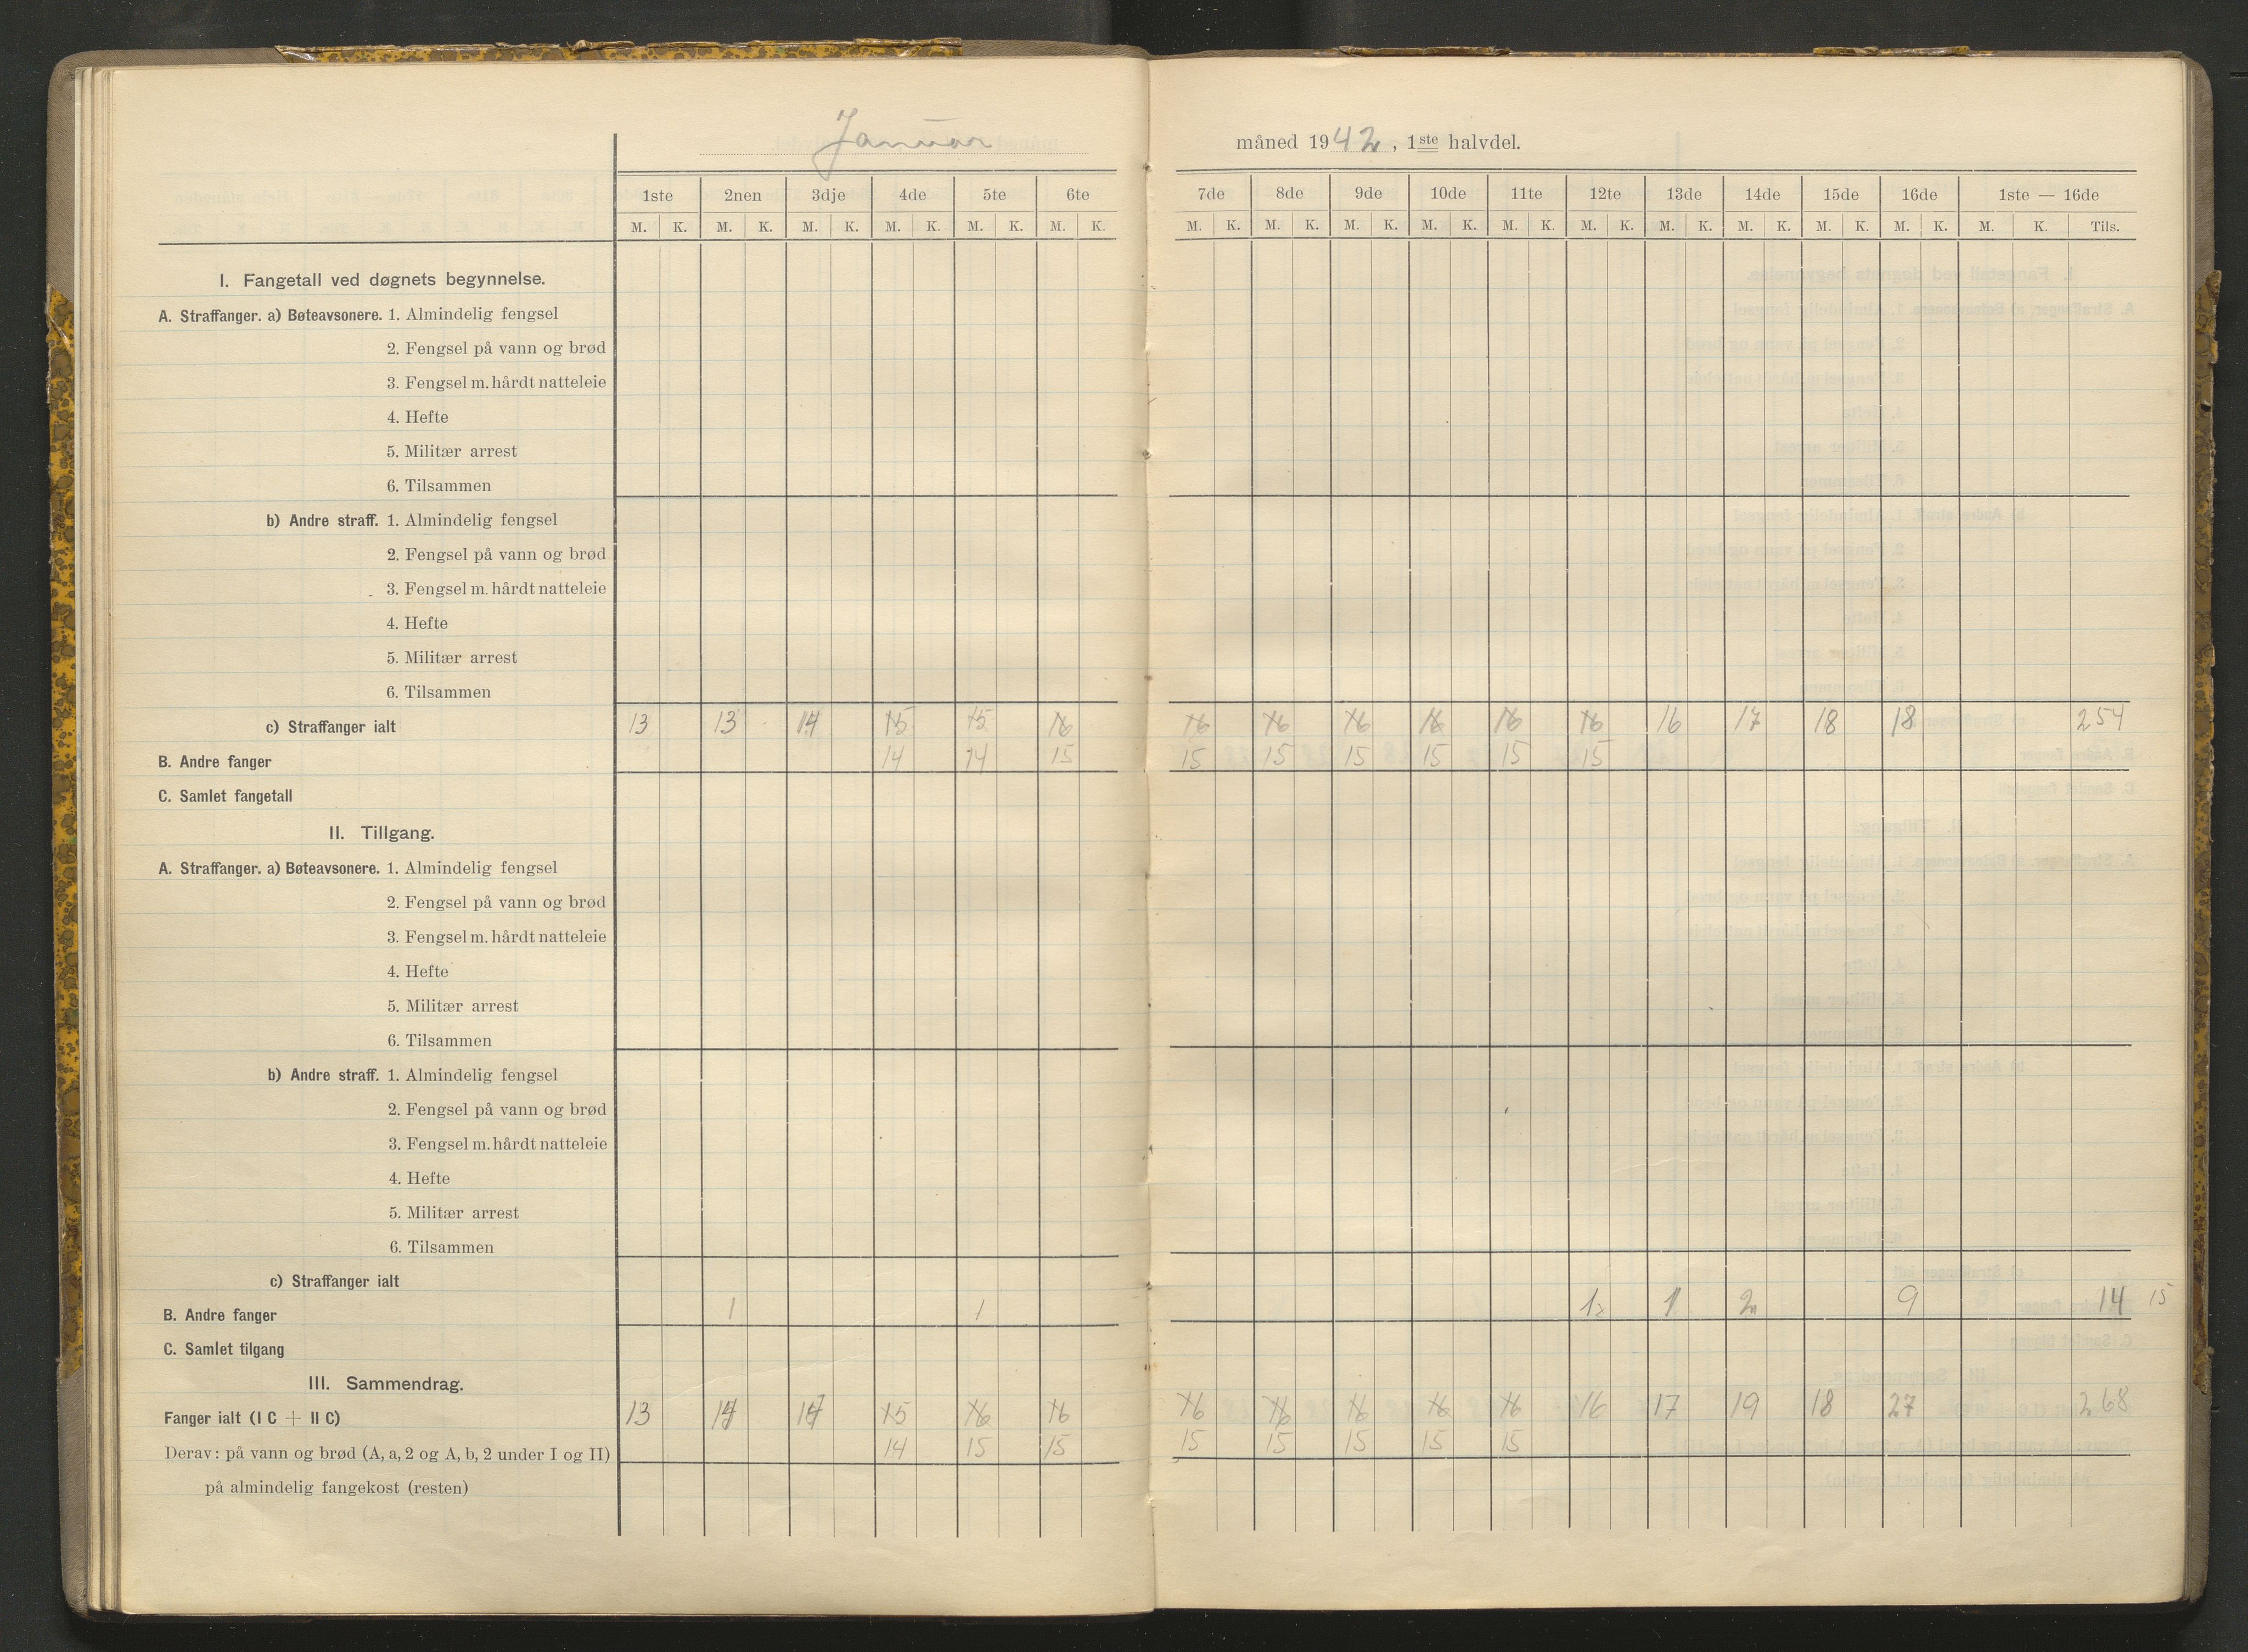 Januar måned 1942, 1ste halvdel.
1ste 2nen 3dje 4de 5te 6te 7de 8de 9de 10de 11te 12te 13de 14de 15de 16de 1ste — 16de
M. K. M. K. M. K. M. K. M. K. M. K. M. K. M. K. M. K. M. K. M. K. M. K. M. K. M. K. M. K. M. K. M. K. Tils.
I. Fangetall ved døgnets begynnelse.
A. Straffanger. a) Bøteavsonere. 1. Almindelig fengsel
2. Fengsel på vann og brød
3. Fengsel m. hårdt natteleie
4. Hefte
5. Militær arrest
6. Tilsammen
b) Andre straff. 1. Almindelig fengsel
2. Fengsel på vann og brød
3. Fengsel m. hårdt natteleie
4. Hefte
5. Militær arrest
6. Tilsammen
c) Straffanger ialt 13 13 14 15 15 16 16 16 16 16 16 16 16 17 18 18 254
B. Andre fanger 14 14 15 15 15 15 15 15 15
C. Samlet fangetall
II. Tillgang.
A. Straffanger. a) Bøteavsonere. 1. Almindelig fengsel
2. Fengsel på vann og brød
3. Fengsel m. hårdt natteleie
4. Hefte
5. Militær arrest
6. Tilsammen
b) Andre straff. 1. Almindelig fengsel
2. Fengsel på vann og brød
3. Fengsel m. hårdt natteleie
4. Hefte
5. Militær arrest
6. Tilsammen
c) Straffanger ialt
B. Andre fanger 1 1 1 1 2 9 14 15
C. Samlet tilgang
III. Sammendrag.
Fanger ialt (I C + II C) 13 14 14 15 16 16 16 16 16 16 16 16 17 19 18 27 268
Derav: på vann og brød (A, a, 2 og A, b, 2 under I og II) 14 15 15 15 15 15 15 15
på almindelig fangekost (resten)